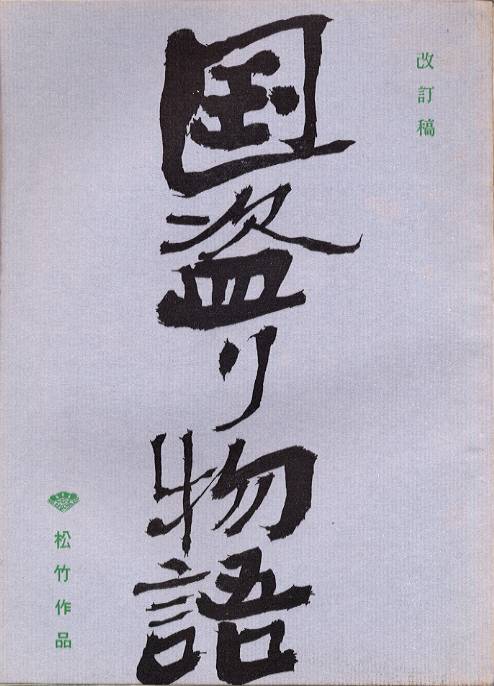 改訂稿
国盗り物語
松竹作品